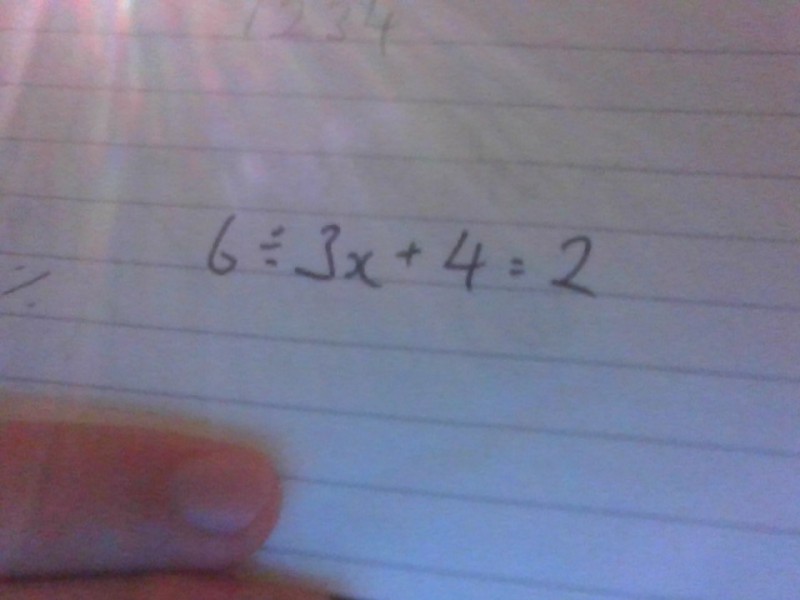 1234
6 ÷ 3x + 4 = 2